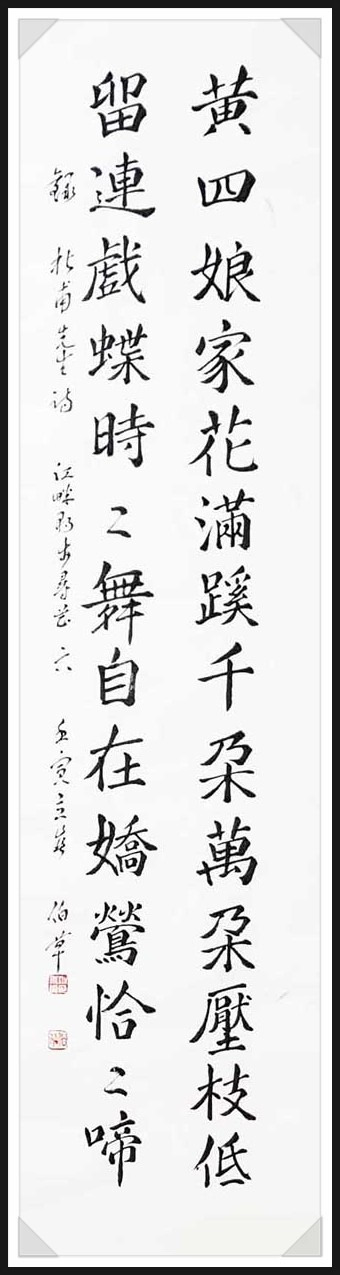 黃四娘家花滿蹊千朶萬朶壓枝低
留連戲蝶時〻舞自在嬌鶯恰〻啼
錄 杜甫先生詩 江畔獨步尋花 六 壬寅立春 伯華